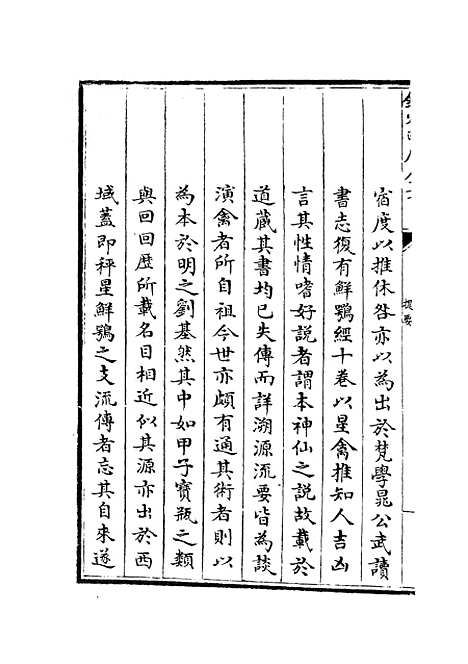 宿度以推休咎亦以為出於梵學晁公武讀
書志復有鮮鶚經十卷以星禽推知人吉凶
言其性情嗜好說者謂本神仙之說故載於
道藏其書均已失傳而詳溯源流要皆為談
演禽者所自祖今世亦頗有通其術者則以
為本於明之劉基然其中如甲子寶瓶之類
與回回歴所載名目相近似其源亦出於西
域蓋即秤星鮮鶚之支流傳者忘其自來遂
提要